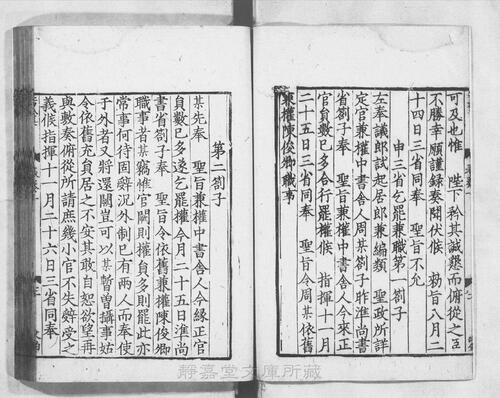 可及也惟　陛下矜其誠懇而俯從之臣
不勝幸願謹録奏聞伏候　勅旨八月二
十四日三省同奉　聖旨不允
申三省乞罷兼職第一劄子
左奉議郎試起居郎兼編類　聖政所詳
定官兼權中書舍人周某劄子昨准尚書
省劄子奉　聖旨兼權中書舍人今來正
官員數已多合行罷權候　指揮十一月
二十五日三省同奉　聖旨令周某依舊
兼權陳俊卿職事
第二劄子
某先奉　聖旨兼權中書舍人今緣正官
員數已多遂乞罷權今月二十五日准尚
書省劄子奉　聖旨令依舊兼權陳俊卿
職事者某竊惟官闕則權員多則罷此亦
常事何待固辭況外制已有兩人而奉使
于外者又將還闕豈可以某暫曾攝事姑
令依舊充員居之不安其敢自恕欲望再
與敷奏俯從所請庶幾小官不失辭受之
義候指揮十一月二十六日三省同奉
靜嘉堂文庫所藏